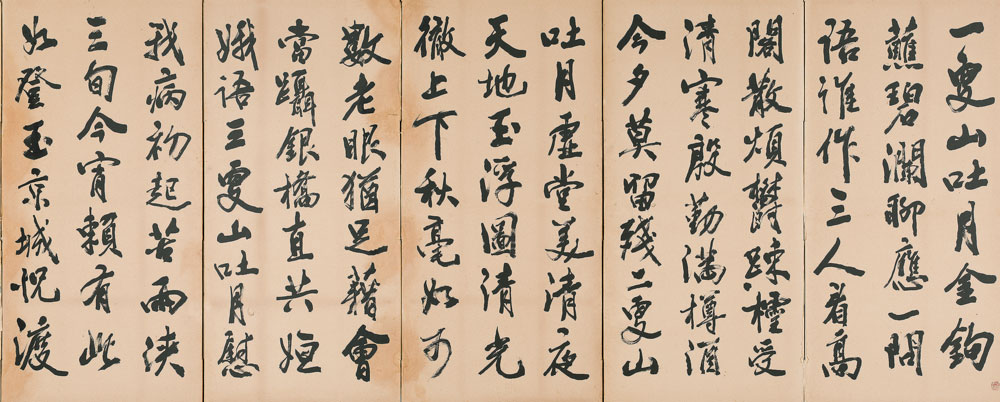 一更山吐月金鉤
蘸碧瀾聊應一問
語誰作三人看高
閣散煩鬱踈櫺受
清寒殷勤滿樽酒
今夕莫留殘二更山
吐月虛堂美清夜
天地玉浮圖清光
徹上下秋毫如可
數老眼猶足藉會
當躡銀橋直共姮
娥語三更山吐月慰
我病初起苦雨浹
三旬今宵賴有此
如登玉京城怳渡